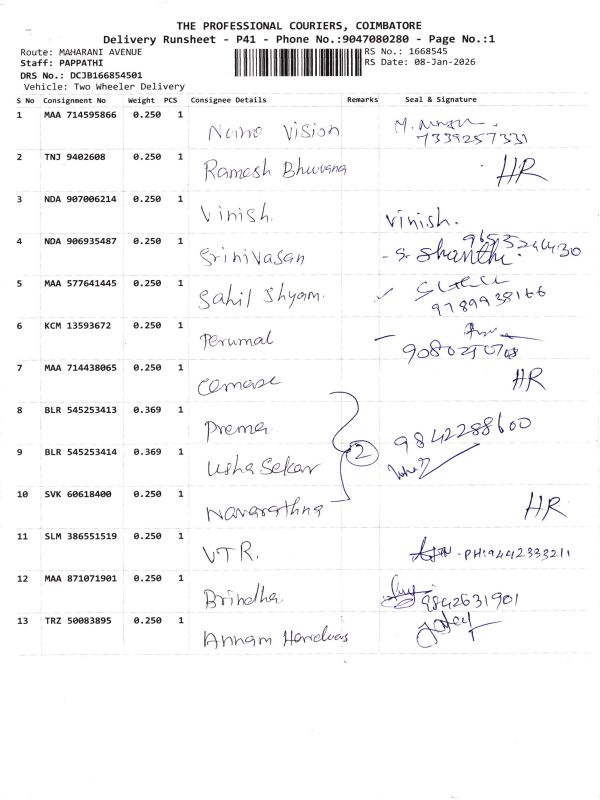 THE PROFESSIONAL COURIERS, COIMBATORE
Delivery Runsheet - P41 - Phone No.:9047080280 - Page No.:1
Route: MAHARANI AVENUE RS No.: 1668545
Staff: PAPPATHI RS Date: 08-Jan-2026
DRS No.: DCJB166854501
Vehicle: Two Wheeler Delivery
S No Consignment No Weight PCS Consignee Details Remarks Seal & Signature
1 MAA 714595866 0.250 1 Nano Vision 7339257331
2 TNJ 9402608 0.250 1 Ramesh Bhuvana HR
3 NDA 907006214 0.250 1 Vinish. Vinish.
4 NDA 906935487 0.250 1 Srinivasan S. Shanthi.
5 MAA 577641445 0.250 1 Sahil Shyam. 9789938166
6 KCM 13593672 0.250 1 Perumal
7 MAA 714438065 0.250 1 HR
8 BLR 545253413 0.369 1 Prema 9842288600
9 BLR 545253414 0.369 1 Usha Sekar 2
10 SVK 60618400 0.250 1 Navarathna HR
11 SLM 386551519 0.250 1 VTR. PH:9442333211
12 MAA 871071901 0.250 1 Brindha 9842631901
13 TRZ 50083895 0.250 1 Annam